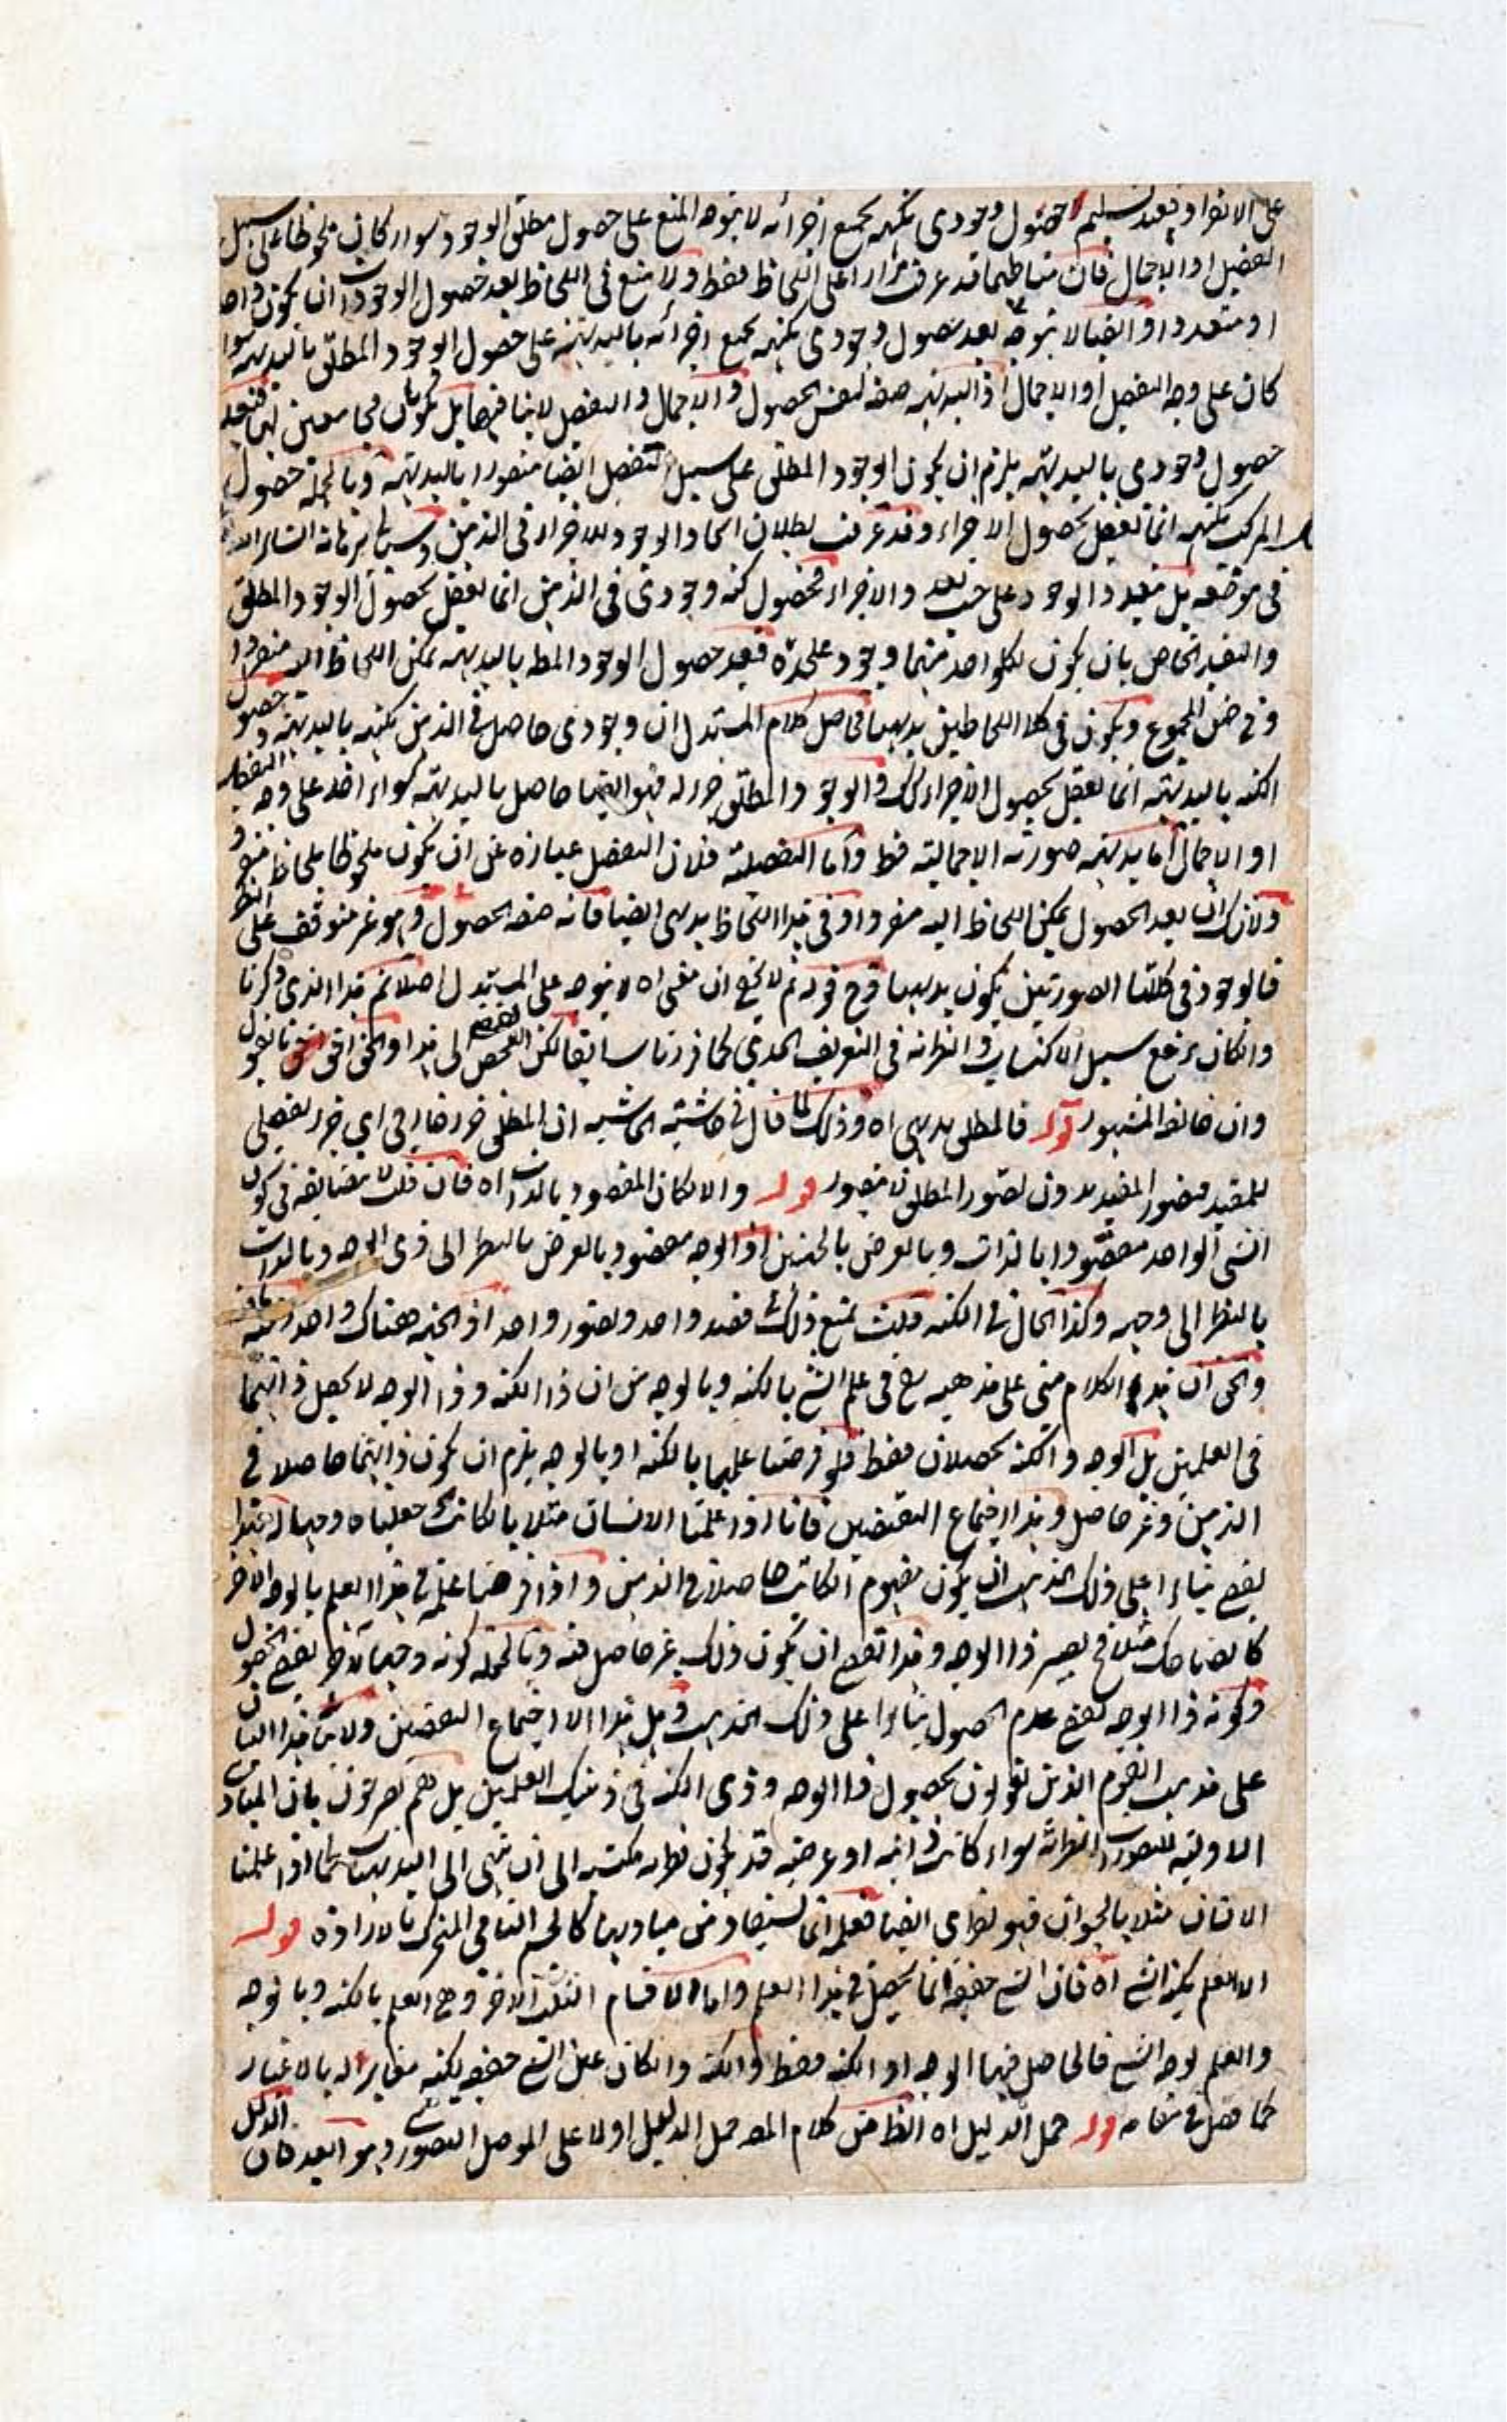 على الانفراد فبعد تسليم حصول وجودي بكنهه بجميع اجزائه لا يتوجه المنع على حصول مطلق الوجود سواء كان ملحوظا على سبيل
التفصيل او الاجمال فان مناطهما قد عرفت مرارا على اللحاظ فقط ولا منع في اللحاظ بعد حصول الوجودات ان يكون واحدا
او متعددا وايضا لا يتوجه بعد حصول وجودي بكنهه بجميع اجزائه بالبديهة على حصول الوجود المطلق بالبديهة سواء
كان على وجه التفصيل او الاجمال اذ البديهة صفة لنفس الحصول والاجمال والتفصيل لا ينافيها بل يكونان مجامعين لها فبعد
حصول وجودي بالبديهة يلزم ان يكون الوجود المطلق على سبيل التفصيل ايضا متصورا بالبديهة وبالجملة حصول
المركب بكنهه انما يعقل بحصول الاجزاء وقد عرفت بطلان اتحاد الوجود للاجزاء في الذهن
في موضعه بل بتعدد الوجود على حسب تعدد الاجزاء فحصول كنه وجودي في الذهن انما يعقل بحصول الوجود المطلق
والتقييد الخاص بان يكون لكل واحد منهما وجود علحدة فبعد حصول الوجود المط بالبديهة يمكن اللحاظ اليه منفردا
وفي ضمن المجموع ويكون في كلا اللحاظين بديهيا فحاصل كلام المستدل ان وجودي حاصل في الذهن بكنهه بالبديهة وحصول
الكنه بالبديهة انما يعقل بحصول الاجزاء كذلك والوجود المطلق جزء له فهو ايضا حاصل بالبديهة سواء اخذ على وجه التفصيل
او الاجمال اما بديهة صورته الاجمالية فظ واما التفصيلية فلان التفصيل عبارة عن ان يكون ملحوظا بلحاظ منفرد
ولا شك ان بعد الحصول يمكن اللحاظ اليه منفردا وفي هذا اللحاظ بديهي ايضا فانه صفة الحصول وهو غير متوقف على النظر
فالوجود في كلتا الصورتين يكون بديهيا قوله ثم لا يخفى ان مقتضاه لا يتوجه على المستدل اصلا نعم هذا الذي ذكرنا
وان كان يرفع سبيل الاكتساب والنظرية في التعريف الحدي كما قررنا سابقا لكن الفحص الى هذا والحق احق بالقبول
وان خالفه المشهور قوله فالمطلق بديهي اه وذلك لما قال في حاشية الحاشية ان المطلق جزء خارجي اي جزء تفصيلي
للمقيد فتصور المقيد بدون تصور المطلق لا يتصور قوله والا لكان المقصود بالذات اه فان قلت لا مضايقة في كون
الشئ الواحد مقصودا بالذات وبالعرض بالجهتين اذ الوجه مقصود بالعرض بالنظر الى ذي الوجه وبالذات
بالنظر الى وجهه وكذا الحال في الكنه قلت يمتنع ذلك في قصد واحد وتصور واحد اذ الجهة هناك واحدة
والحق ان هذا الكلام مبني على مذهبه في علم الشئ بالكنه وبالوجه من ان ذا الكنه وذا الوجه لا يحصل ذاتهما
في العلمين بل الوجه والكنه يحصلان فقط فلو فرضنا علمهما بالكنه او بالوجه يلزم ان يكون ذاتهما حاصلا في
الذهن وغير حاصل وهذا اجتماع النقيضين فانا اذا علمنا الانسان مثلا بالكاتب وجعلناه وجها له فهذا
يقتضي بناء على ذلك المذهب ان يكون مفهوم الكاتب حاصلا في الذهن واذا فرضنا علمه في هذا العلم بالوجه الآخر
كالضاحك مثلا فح يصير ذا الوجه وهذا يقتضي ان يكون ذلك غير حاصل فيه وبالجملة كونه وجها لآخر يقتضي الحصول
وكونه ذا الوجه يقتضي عدم الحصول بناء على ذلك المذهب وهل هذا الا اجتماع النقيضين ولا يتأتى هذا البيان
على مذهب القوم الذين يقولون بحصول ذا الوجه وذي الكنه في ذينك العلمين بل هم يصرحون بان المبادي
الاولية للتصورات النظرية سواء كانت ذاتية او عرضية قد يكون نظرية مكتسبة الى ان تنتهي الى البديهيات كما اذا علمنا
الانسان مثلا بالحيوان فهو نظري ايضا فعلمه انما يستفاد من مباديها كالجسم النامي المتحرك بالارادة قوله
الا العلم بكنه الشئ اه فان الشئ حقيقة انما يحصل في هذا العلم واما الاقسام الثلث الاخر وهي العلم بالكنه وبالوجه
والعلم بوجه الشئ فالحاصل فيها الوجه او الكنه فقط والكنه وان كان عين الشئ حقيقة لكنه مغاير له بالاعتبار
كما فصل في مقامه قوله حمل الدليل اه الظ من كلام المصـ حمل الدليل اولا على الموصل التصوري وهو بعيد فان الدليل